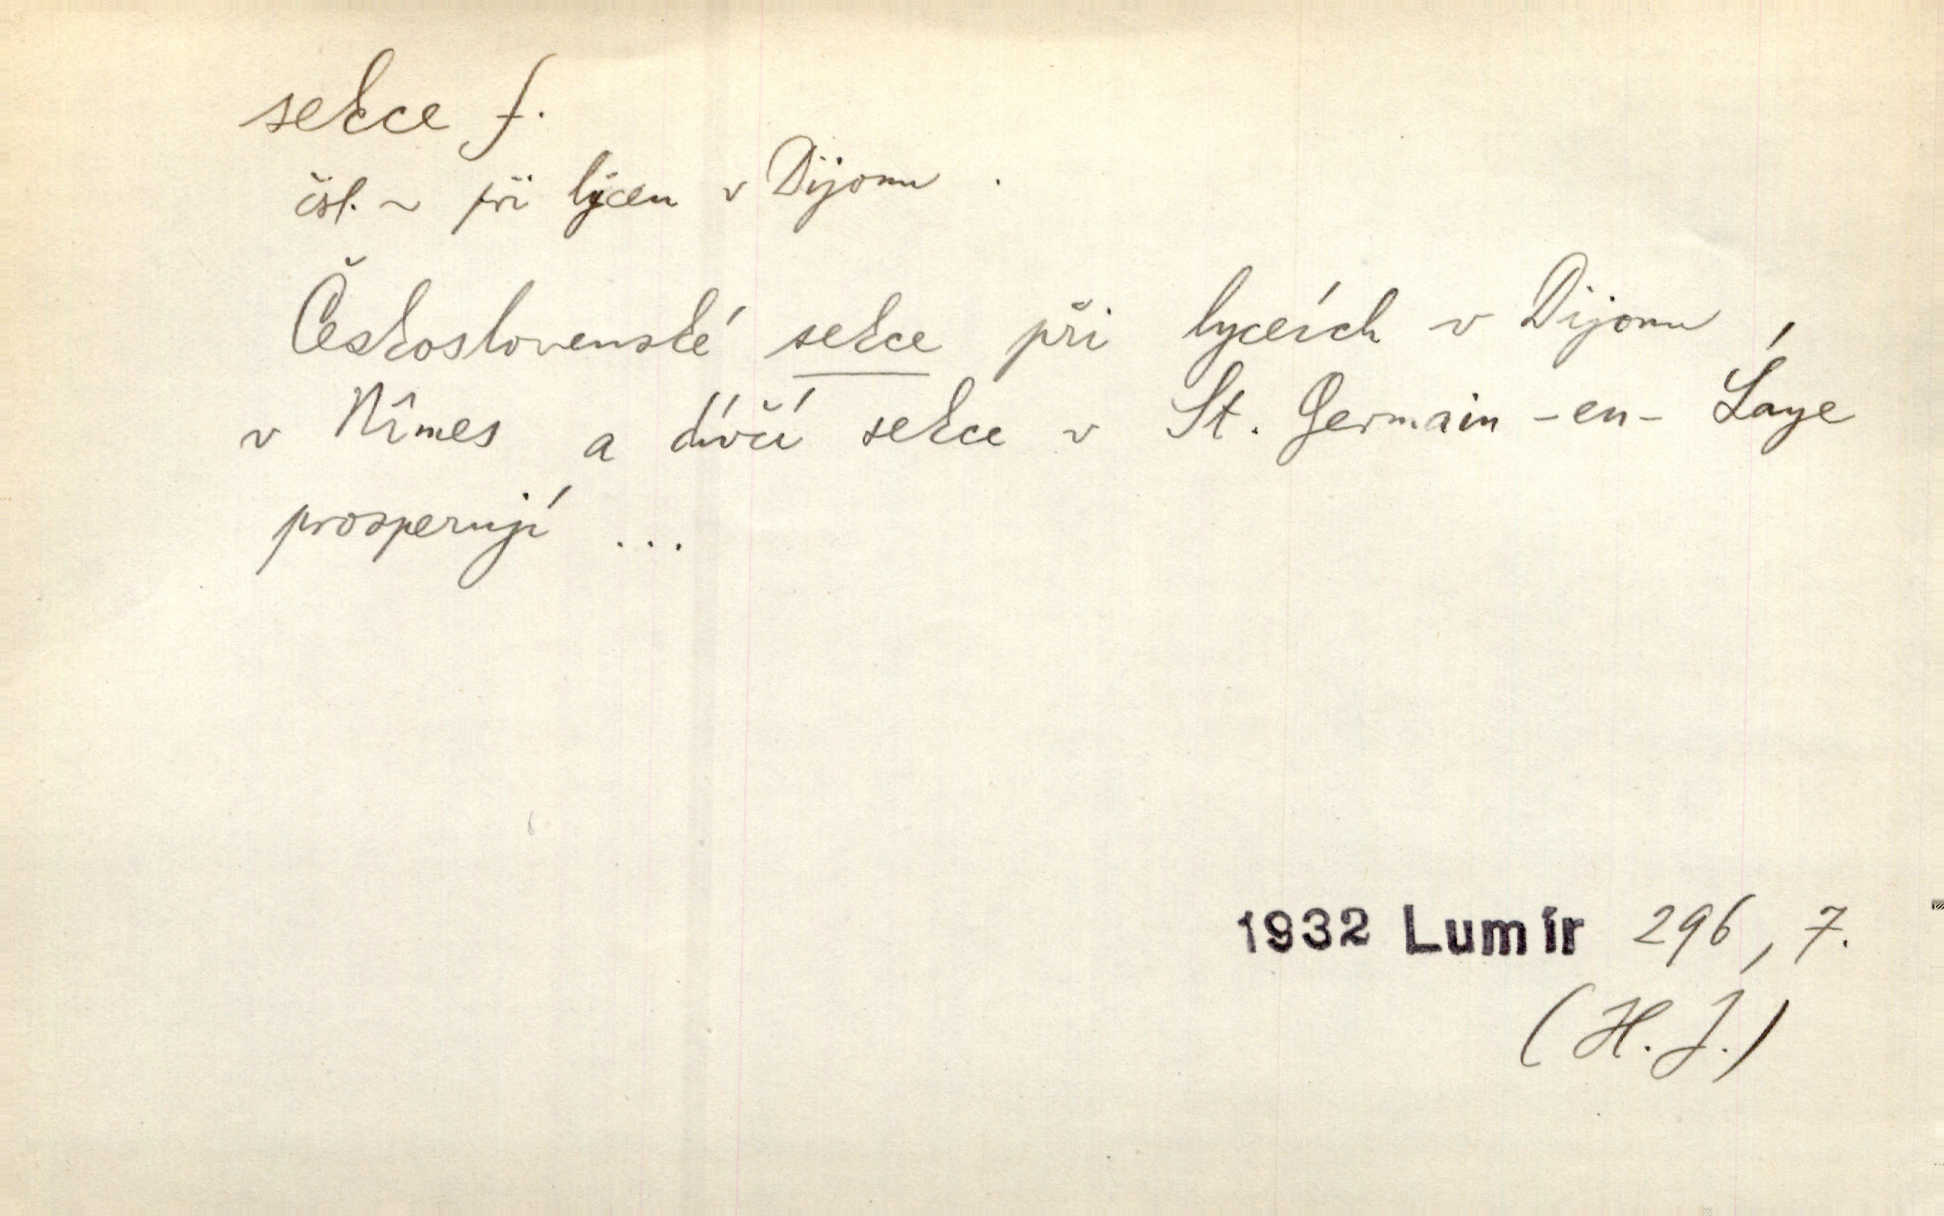 sekce f.
čsl. ~ při lyceu v Dijonu.
Československé sekce při lyceích v Dijonu,
v Nîmes a dívčí sekce v St. Germain-en-Laye
prosperují ...
1932 Lumír 296, 7.
(H. J.)